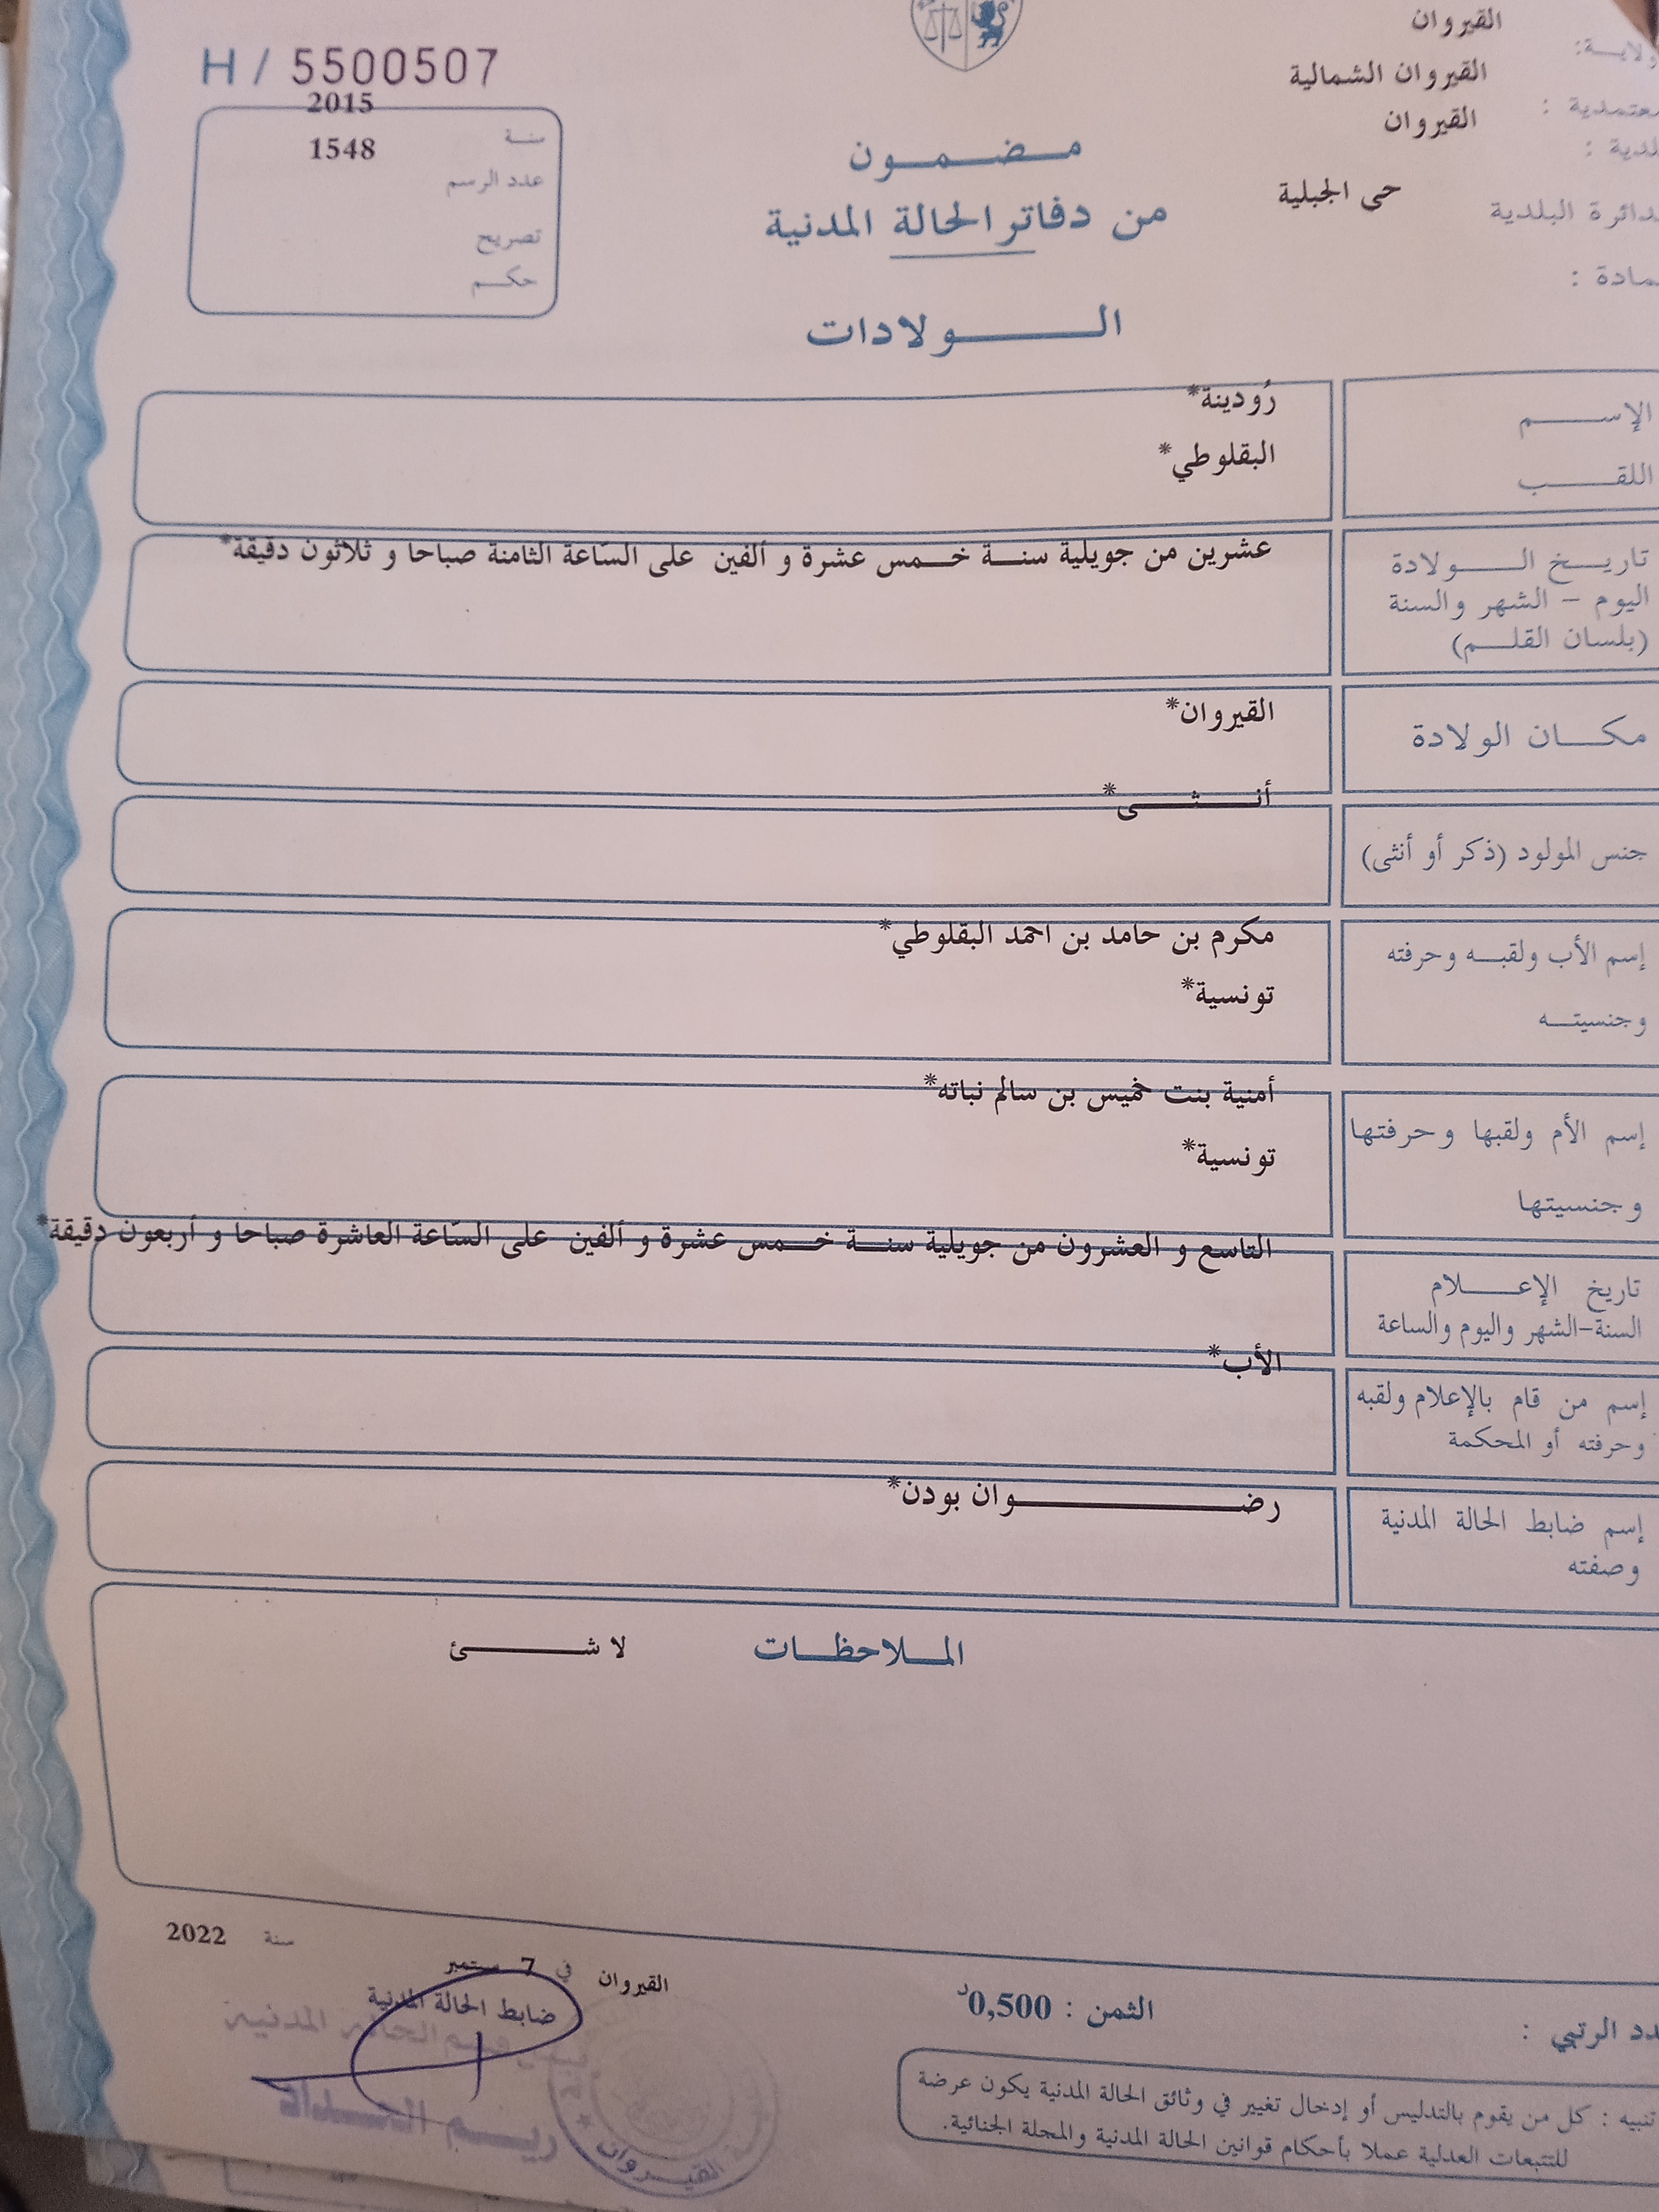 القيروان
القيروان الشمالية
معتمدية :
القيروان
حي الجبلية
الدائرة البلدية
H / 5500507
2015
سنة
1548
عدد الرسم
تصريح
حكم
مضمون
من دفاتر الحالة المدنية
الولادات
الإسم
رُودينة*
اللقب
البقلوطي*
تاريخ الولادة
اليوم – الشهر والسنة
(بلسان القلم)
عشرين من جويلية سنة خمس عشرة و ألفين على السّاعة الثامنة صباحا و ثلاثون دقيقة*
مكان الولادة
القيروان*
جنس المولود (ذكر أو أنثى)
أنثى*
إسم الأب ولقبه وحرفته
مكرم بن حامد بن احمد البقلوطي*
وجنسيته
تونسية*
إسم الأم ولقبها وحرفتها
أمنية بنت خميس بن سالم نباته*
وجنسيتها
تونسية*
تاريخ الإعلام
السنة-الشهر واليوم والساعة
التاسع و العشرون من جويلية سنة خمس عشرة و ألفين على السّاعة العاشرة صباحا و أربعون دقيقة*
إسم من قام بالإعلام ولقبه
وحرفته أو المحكمة
الأب*
إسم ضابط الحالة المدنية
وصفته
رضوان بودن*
الملاحظات
لا شئ
القيروان في 7 سبتمبر سنة 2022
ضابط الحالة المدنية
الثمن : 0,500د
الرتبي :
تنبيه : كل من يقوم بالتدليس أو إدخال تغيير في وثائق الحالة المدنية يكون عرضة
للتتبعات العدلية عملا بأحكام قوانين الحالة المدنية والمجلة الجنائية.
القيروان